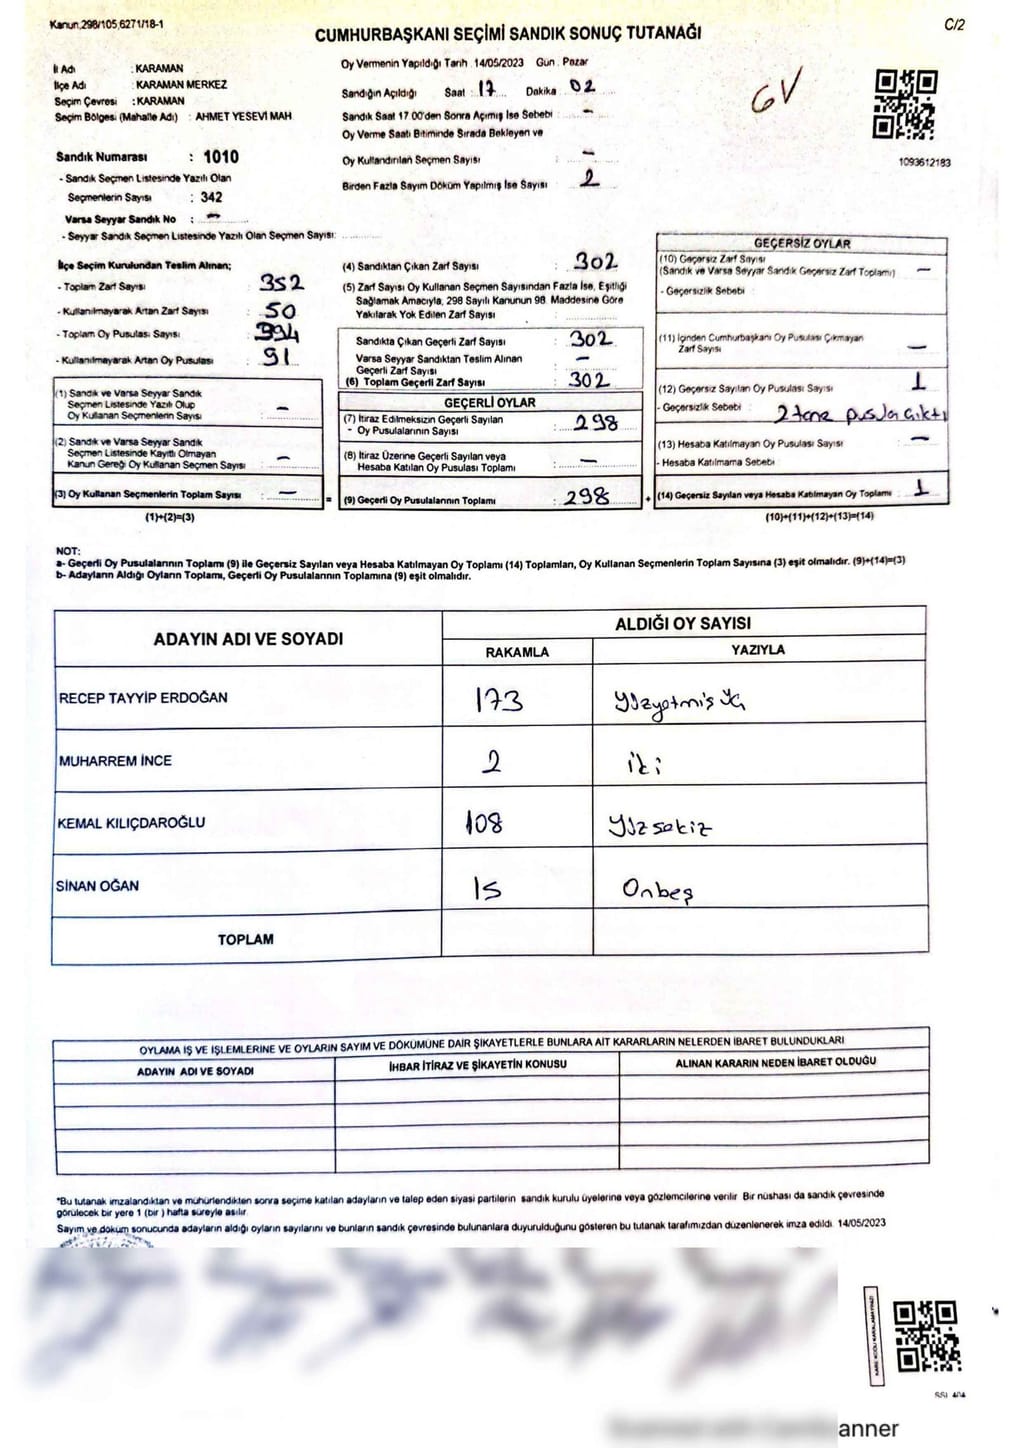 Kanun.298/105,6271/18-1
C/2
CUMHURBAŞKANI SEÇİMİ SANDIK SONUÇ TUTANAĞI
İl Adı : KARAMAN
İlçe Adı : KARAMAN MERKEZ
Seçim Çevresi : KARAMAN
Seçim Bölgesi (Mahalle Adı) : AHMET YESEVİ MAH
Sandık Numarası : 1010
- Sandık Seçmen Listesinde Yazılı Olan
Seçmenlerin Sayısı : 342
Varsa Seyyar Sandık No : -
- Seyyar Sandık Seçmen Listesinde Yazılı Olan Seçmen Sayısı:
Oy Vermenin Yapıldığı Tarih : 14/05/2023 Gün : Pazar
Sandığın Açıldığı Saat : 17 Dakika : 02
Sandık Saat 17 00'den Sonra Açımış İse Sebebi : -
Oy Verme Saati Bitiminde Sırada Bekleyen ve
Oy Kullandırılan Seçmen Sayısı : -
Birden Fazla Sayım Döküm Yapılmış İse Sayısı : 2
GV
1093612183
İlçe Seçim Kurulundan Teslim Alınan;
- Toplam Zarf Sayısı : 352
- Kullanılmayarak Artan Zarf Sayısı : 50
- Toplam Oy Pusulası Sayısı : 394
- Kullanılmayarak Artan Oy Pusulası : 91
(1) Sandık ve Varsa Seyyar Sandık
Seçmen Listesinde Yazılı Olup
Oy Kullanan Seçmenlerin Sayısı : -
(2) Sandık ve Varsa Seyyar Sandık
Seçmen Listesinde Kayıtlı Olmayan
Kanun Gereği Oy Kullanan Seçmen Sayısı : -
(3) Oy Kullanan Seçmenlerin Toplam Sayısı : -
(1)+(2)=(3)
(4) Sandıktan Çıkan Zarf Sayısı : 302
(5) Zarf Sayısı Oy Kullanan Seçmen Sayısından Fazla İse, Eşitliği
Sağlamak Amacıyla, 298 Sayılı Kanunun 98. Maddesine Göre
Yakılarak Yok Edilen Zarf Sayısı :
Sandıkta Çıkan Geçerli Zarf Sayısı : 302
Varsa Seyyar Sandıktan Teslim Alınan
Geçerli Zarf Sayısı : -
(6) Toplam Geçerli Zarf Sayısı : 302
GEÇERLİ OYLAR
(7) İtiraz Edilmeksizin Geçerli Sayılan
- Oy Pusulalarının Sayısı : 298
(8) İtiraz Üzerine Geçerli Sayılan veya
Hesaba Katılan Oy Pusulası Toplamı : -
= (9) Geçerli Oy Pusulalarının Toplamı : 298 +
GEÇERSİZ OYLAR
(10) Geçersiz Zarf Sayısı
(Sandık ve Varsa Seyyar Sandık Geçersiz Zarf Toplamı) -
- Geçersizlik Sebebi
(11) İçinden Cumhurbaşkanı Oy Pusulası Çıkmayan
Zarf Sayısı -
(12) Geçersiz Sayılan Oy Pusulası Sayısı 1
- Geçersizlik Sebebi : 2 tane pusula çıktı
(13) Hesaba Katılmayan Oy Pusulası Sayısı -
- Hesaba Katılmama Sebebi
(14) Geçersiz Sayılan veya Hesaba Katılmayan Oy Toplamı : 1
(10)+(11)+(12)+(13)=(14)
NOT:
a- Geçerli Oy Pusulalarının Toplamı (9) ile Geçersiz Sayılan veya Hesaba Katılmayan Oy Toplamı (14) Toplamları, Oy Kullanan Seçmenlerin Toplam Sayısına (3) eşit olmalıdır. (9)+(14)=(3)
b- Adayların Aldığı Oyların Toplamı, Geçerli Oy Pusulalarının Toplamına (9) eşit olmalıdır.
ADAYIN ADI VE SOYADI
ALDIĞI OY SAYISI
RAKAMLA YAZIYLA
RECEP TAYYİP ERDOĞAN 173 Yüzyetmiş üç
MUHARREM İNCE 2 iki
KEMAL KILIÇDAROĞLU 108 Yüz sekiz
SİNAN OĞAN 15 Onbeş
TOPLAM
OYLAMA İŞ VE İŞLEMLERİNE VE OYLARIN SAYIM VE DÖKÜMÜNE DAİR ŞİKAYETLERLE BUNLARA AİT KARARLARIN NELERDEN İBARET BULUNDUKLARI
ADAYIN ADI VE SOYADI İHBAR İTİRAZ VE ŞİKAYETİN KONUSU ALINAN KARARIN NEDEN İBARET OLDUĞU
*Bu tutanak imzalandıktan ve mühürlendikten sonra seçime katılan adayların ve talep eden siyasi partilerin sandık kurulu üyelerine veya gözlemcilerine verilir Bir nüshası da sandık çevresinde
görülecek bir yere 1 (bir ) hafta süreyle asılır
Sayım ve döküm sonucunda adayların aldığı oyların sayılarını ve bunların sandık çevresinde bulunanlara duyurulduğunu gösteren bu tutanak tarafımızdan düzenlenerek imza edildi 14/05/2023
KARE KODU KARALAMAYINIZ!
SSI 404
anner